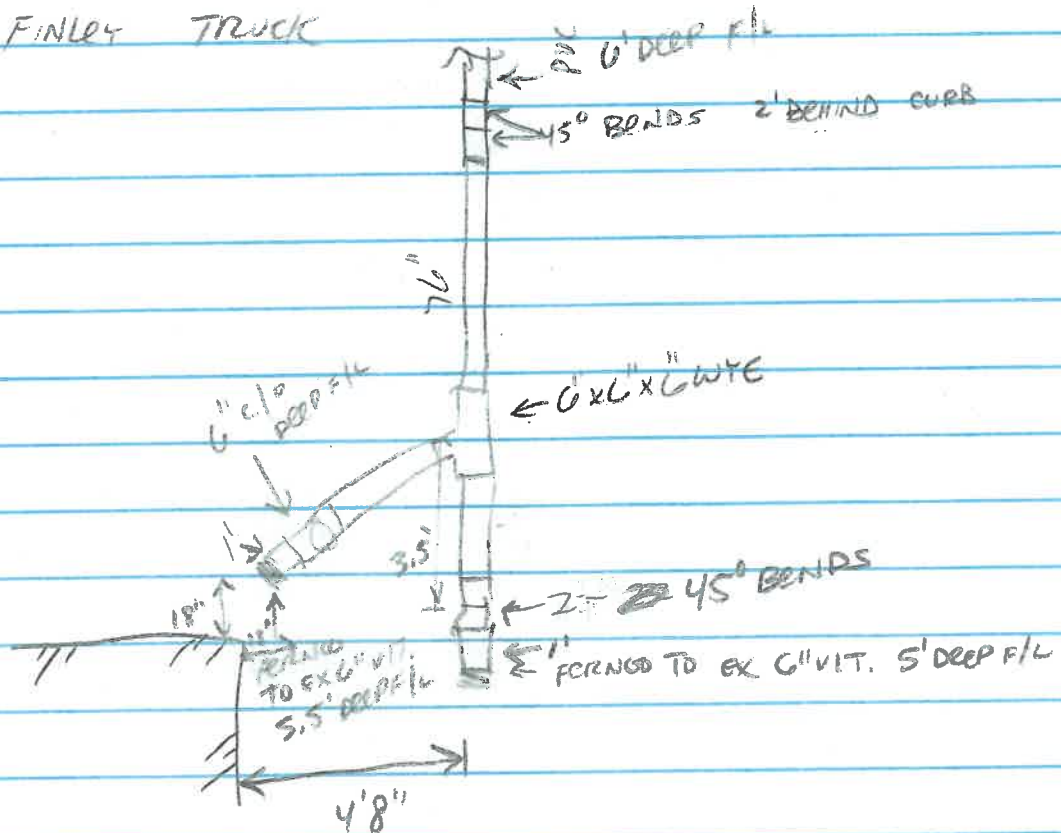 FINLEY TRUCK
PVC 6' DEEP F/L
45° BENDS 2' BEHIND CURB
76"
6"x6"x6" WYE
6" c/o
DEEP F/L
1'
3.5'
18"
2- 45° BENDS
FERNCO
TO EX 6" VIT.
5.5' DEEP F/L
FERNCO TO EX 6" VIT. 5' DEEP F/L
4'8"